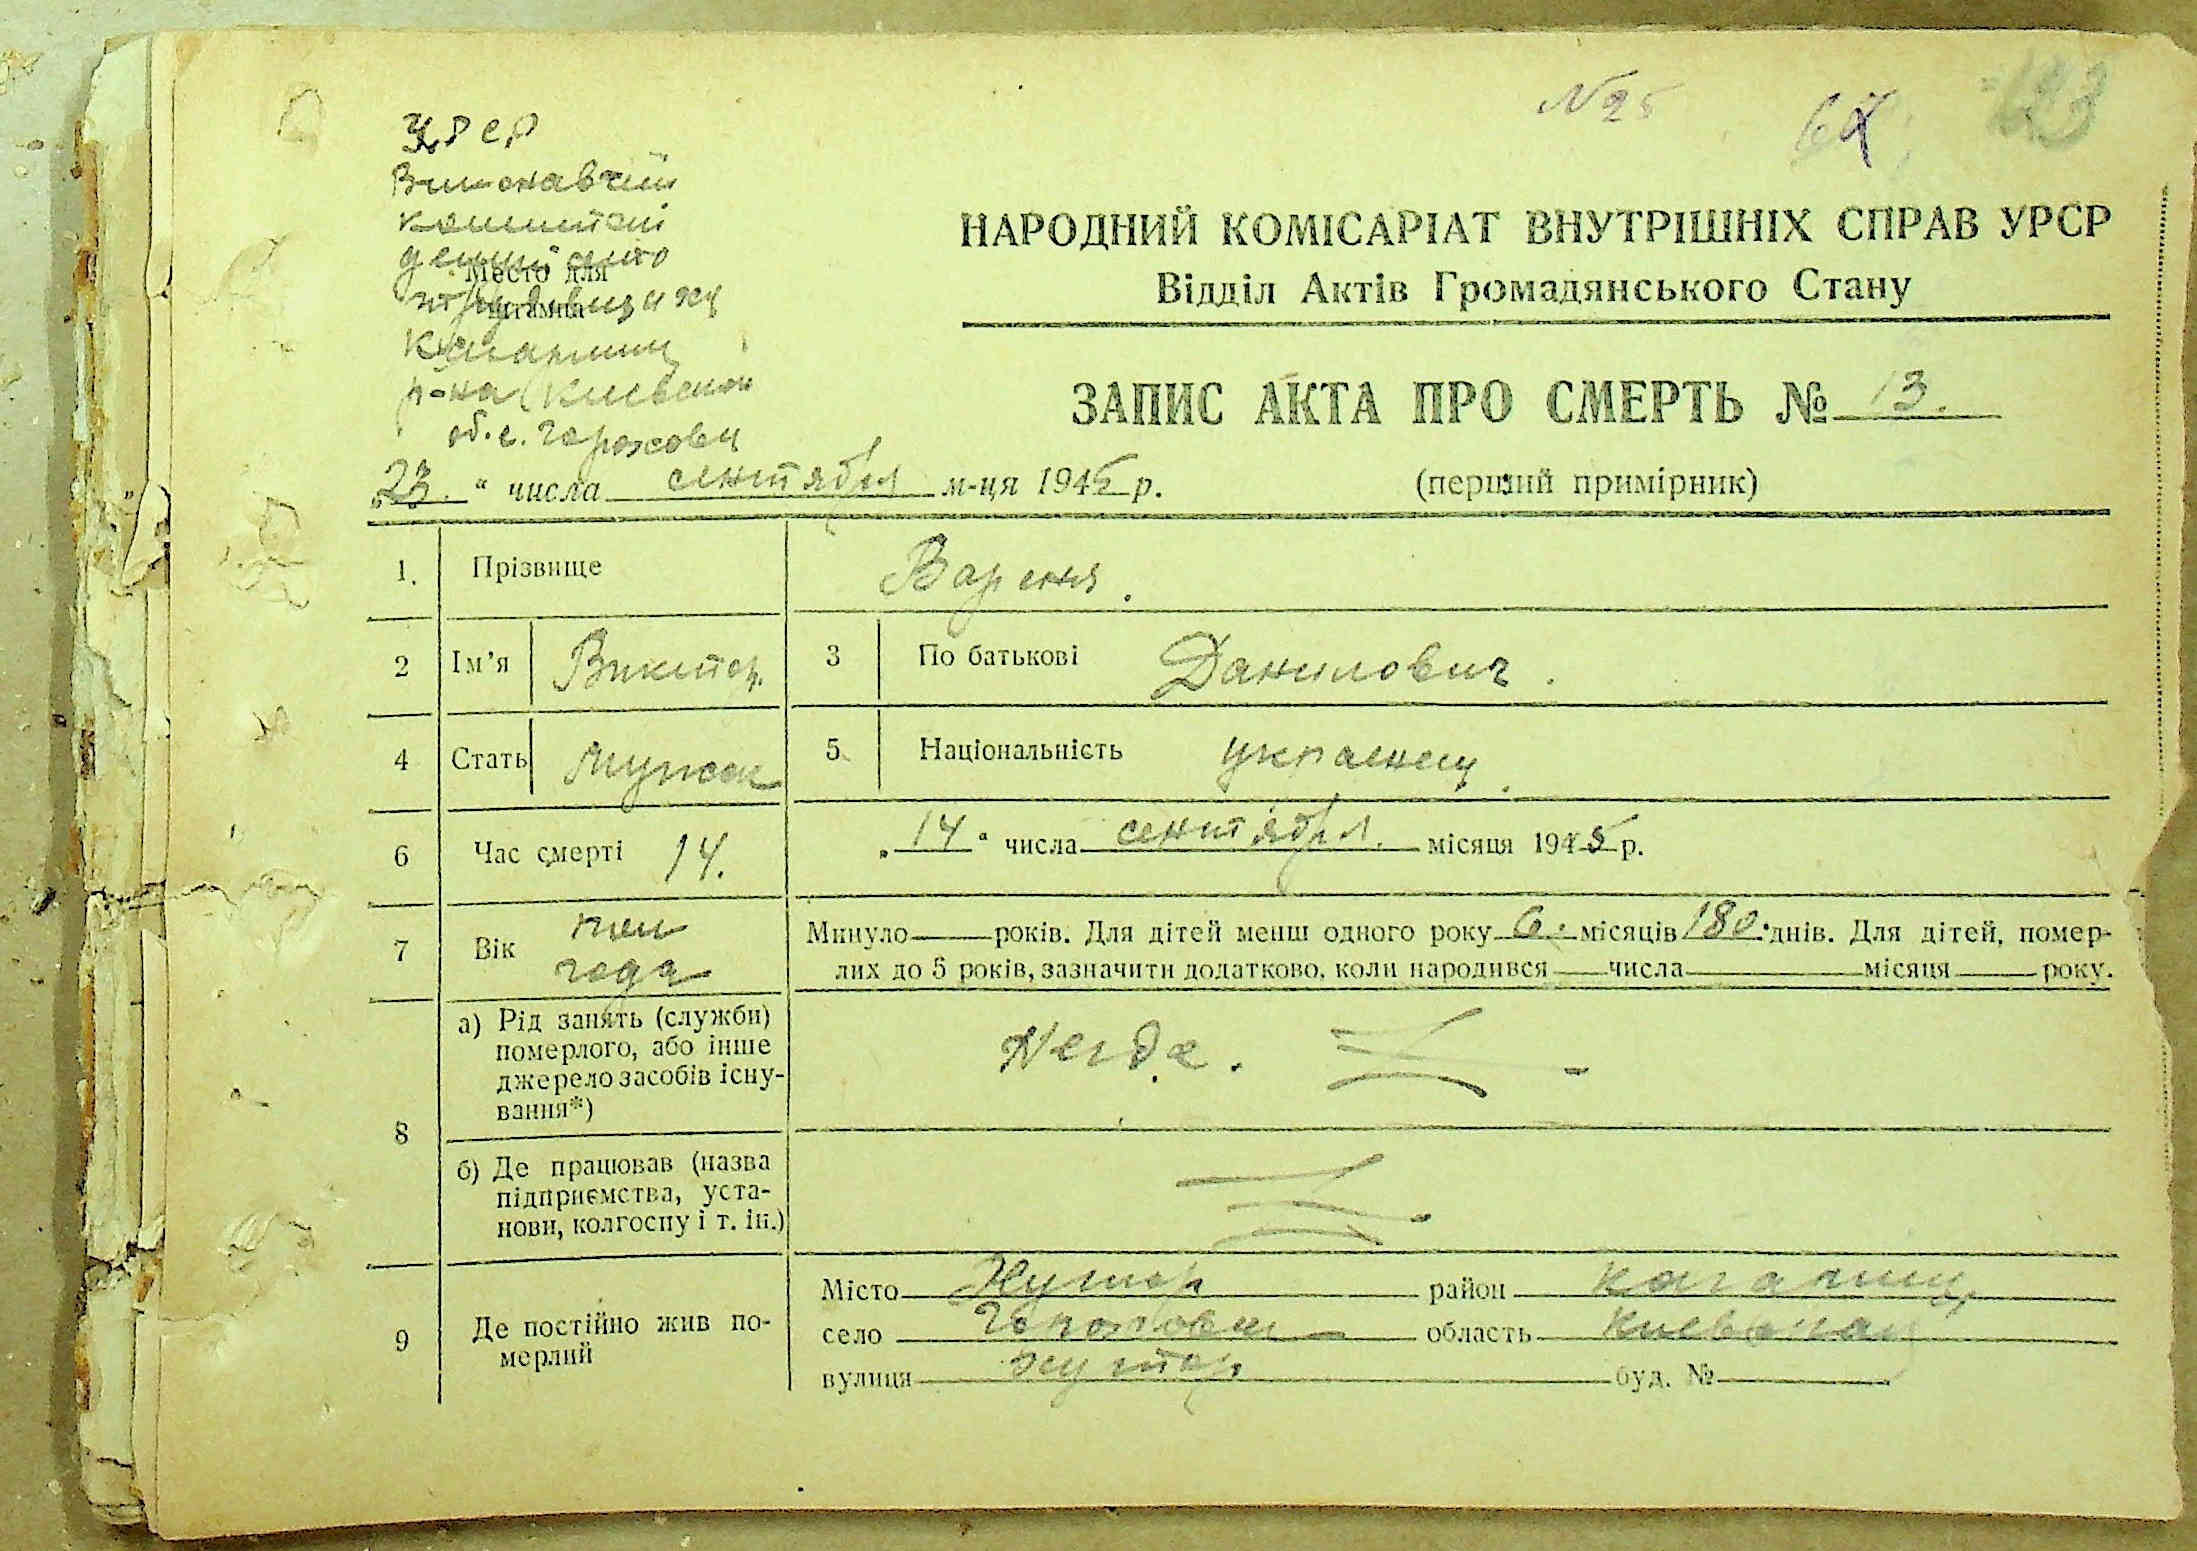 № 25
УРСР
Виконавчий
комитет
Место для
штампа
р-на Киевской
об. с. Гороховец
НАРОДНИЙ КОМІСАРІАТ ВНУТРІШНІХ СПРАВ УРСР
Відділ Актів Громадянського Стану
ЗАПИС АКТА ПРО СМЕРТЬ № 13.
„23.“ числа сентября м-ця 1945 р. (перший примірник)
1. Прізвище
2 Ім’я Виктор. 3 По батькові Данилович.
4 Стать мужск 5. Національність украинец.
6 Час смерті 14. „14“ числа сентября. місяця 1945 р.
7 Вік пол года Минуло років. Для дітей менш одного року 6. місяців 180. днів. Для дітей, помер-
лих до 5 років, зазначити додатково, коли народився числа місяця року.
8 а) Рід занять (служби)
померлого, або інше
джерело засобів існу-
вання*)
б) Де працював (назва
підприємства, уста-
нови, колгоспу і т. ін.)
9 Де постійно жив по-
мерлий
Місто Хутор район
село область Киевская
вулиця хутор буд. №